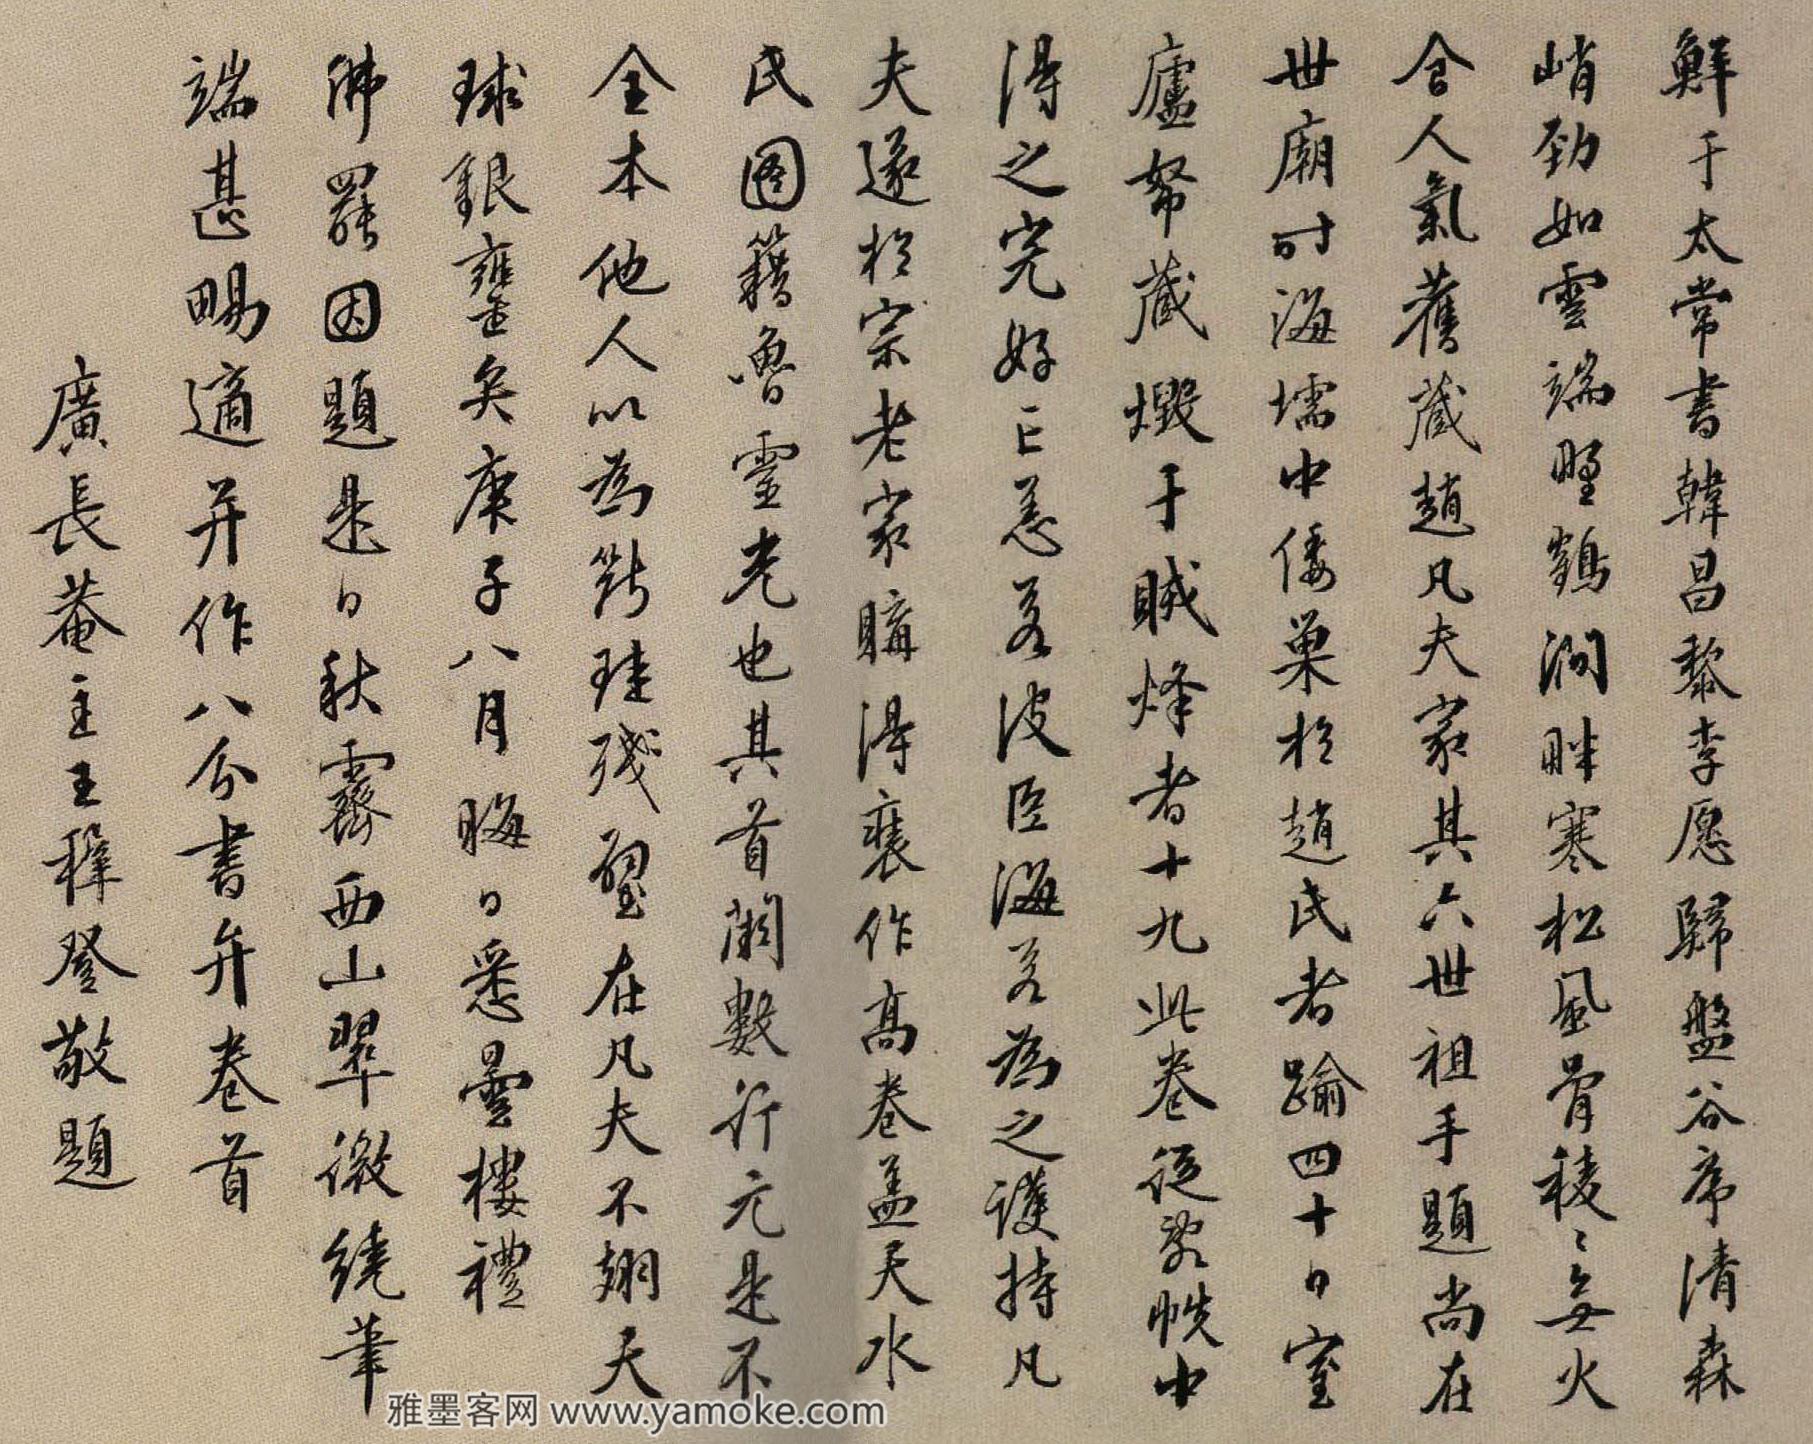 鮮于太常書韓昌黎李愿歸盤谷序清森
峭勁如雲端野鶴澗畔寒松風骨稜〻無火
食人氣舊藏趙凡夫家其六世祖手題尚在
世廟时海壖中倭巢於趙氏者踰四十日室
廬帑藏燬于賊烽者十九此卷從敝帙中
得之完好亡恙若波臣海若為之護持凡
夫遂於宗老家購得裝作高卷盖天水
氏图籍魯靈光也其首闕數行元是不
全本他人以為斷珪殘璧在凡夫不翅天
球銀甕矣庚子八月晦日悉曇樓禮
佛罷因題是日秋霽西山翠微繞筆
端甚賜適并作八分書弁卷首
廣長菴主王穉登敬題
雅墨客网 www.yamoke.com